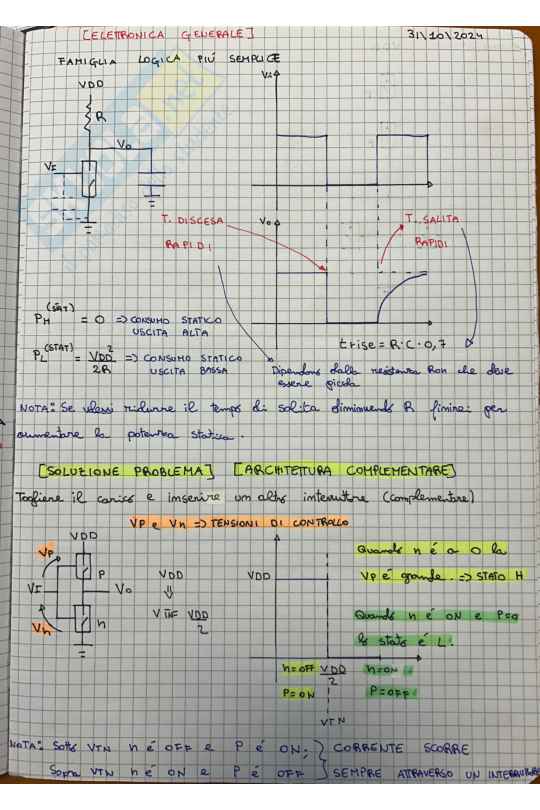 [ELETTRONICA GENERALE] 31\10\2024
FAMIGLIA LOGICA PIÚ SEMPLICE
VDD
R
Vo
VI
T. DISCESA
RAPIDI
T. SALITA
RAPIDI
Vo
PH (STAT) = 0 => CONSUMO STATICO
USCITA ALTA
PL (STAT) = VDD²/2R => CONSUMO STATICO
USCITA BASSA
trise = R·C·0,7
Dipendono dalla resistenza Ron che deve
essere piccola
NOTA: Se vlessi ridurre il tempo di salita diminuendo R finirei per
aumentare la potenza statica.
[SOLUZIONE PROBLEMA] [ARCHITETTURA COMPLEMENTARE]
Togliere il carico e inserire un altro interruttore (complementare)
VP e Vn => TENSIONI DI CONTROLLO
VDD
VP
P
VI
Vo
Vn
n
VDD
⇓
VDD/2
VDD
Quando n é a 0 la
VP é grande. => STATO H
Quando n é ON e P=0
lo stato é L.
n=OFF VDD/2 n=ON
P=ON P=OFF
VTN
NOTA: Sotto VTN n é OFF e P é ON; } CORRENTE SCORRE
Sopra VTN n é ON e P é OFF } SEMPRE ATTRAVERSO UN